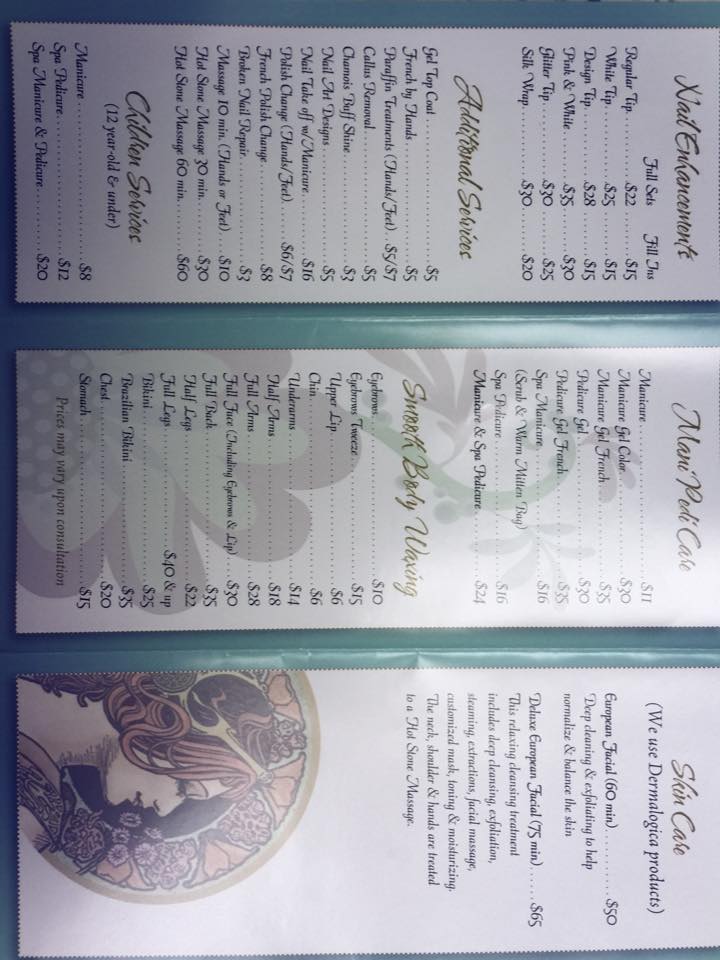 Nail Enhancements
Full Sets Fill Ins
Regular Tip $22 $15
White Tip $25 $15
Design Tip $28 $15
Pink & White $35 $30
Glitter Tip $30 $25
Silk Wrap $30 $20
Additional Services
Gel Top Coat $5
French by Hands $5
Paraffin Treatments (Hands/Feet) $5/$7
Callus Removal $5
Chamois Buff Shine $3
Nail Art Designs $5
Nail Take off w/Manicure $16
Polish Change (Hands/Feet) $6/$7
French Polish Change $8
Broken Nail Repair $3
Massage 10 min. (Hands or Feet) $10
Hot Stone Massage 30 min. $30
Hot Stone Massage 60 min. $60
Children Services
(12 year-old & under)
Manicure $8
Spa Pedicure $12
Spa Manicure & Pedicure $20
Mani Pedi Care
Manicure $11
Manicure Gel Color $30
Manicure Gel French $35
Pedicure Gel $30
Pedicure Gel French $35
Spa Manicure $16
(Scrub & Warm Mitten Bag)
Spa Pedicure $16
Manicure & Spa Pedicure $24
Smooth Body Waxing
Eyebrows $10
Eyebrows Tweeze $15
Upper Lip $6
Chin $6
Underarms $14
Half Arms $18
Full Arms $28
Full Face (Including Eyebrows & Lip) $30
Full Back $35
Half Legs $22
Full Legs $40 & up
Bikini $25
Brazilian Bikini $35
Chest $20
Stomach $15
Prices may vary upon consultation
Skin Care
(We use Dermalogica products)
European Facial (60 min) $50
Deep cleaning & exfoliating to help
normalize & balance the skin
Deluxe European Facial (75 min) $65
This relaxing cleansing treatment
includes deep cleansing, exfoliation,
steaming, extractions, facial massage,
customized mask, toning & moisturizing.
The neck, shoulder & hands are treated
to a Hot Stone Massage.